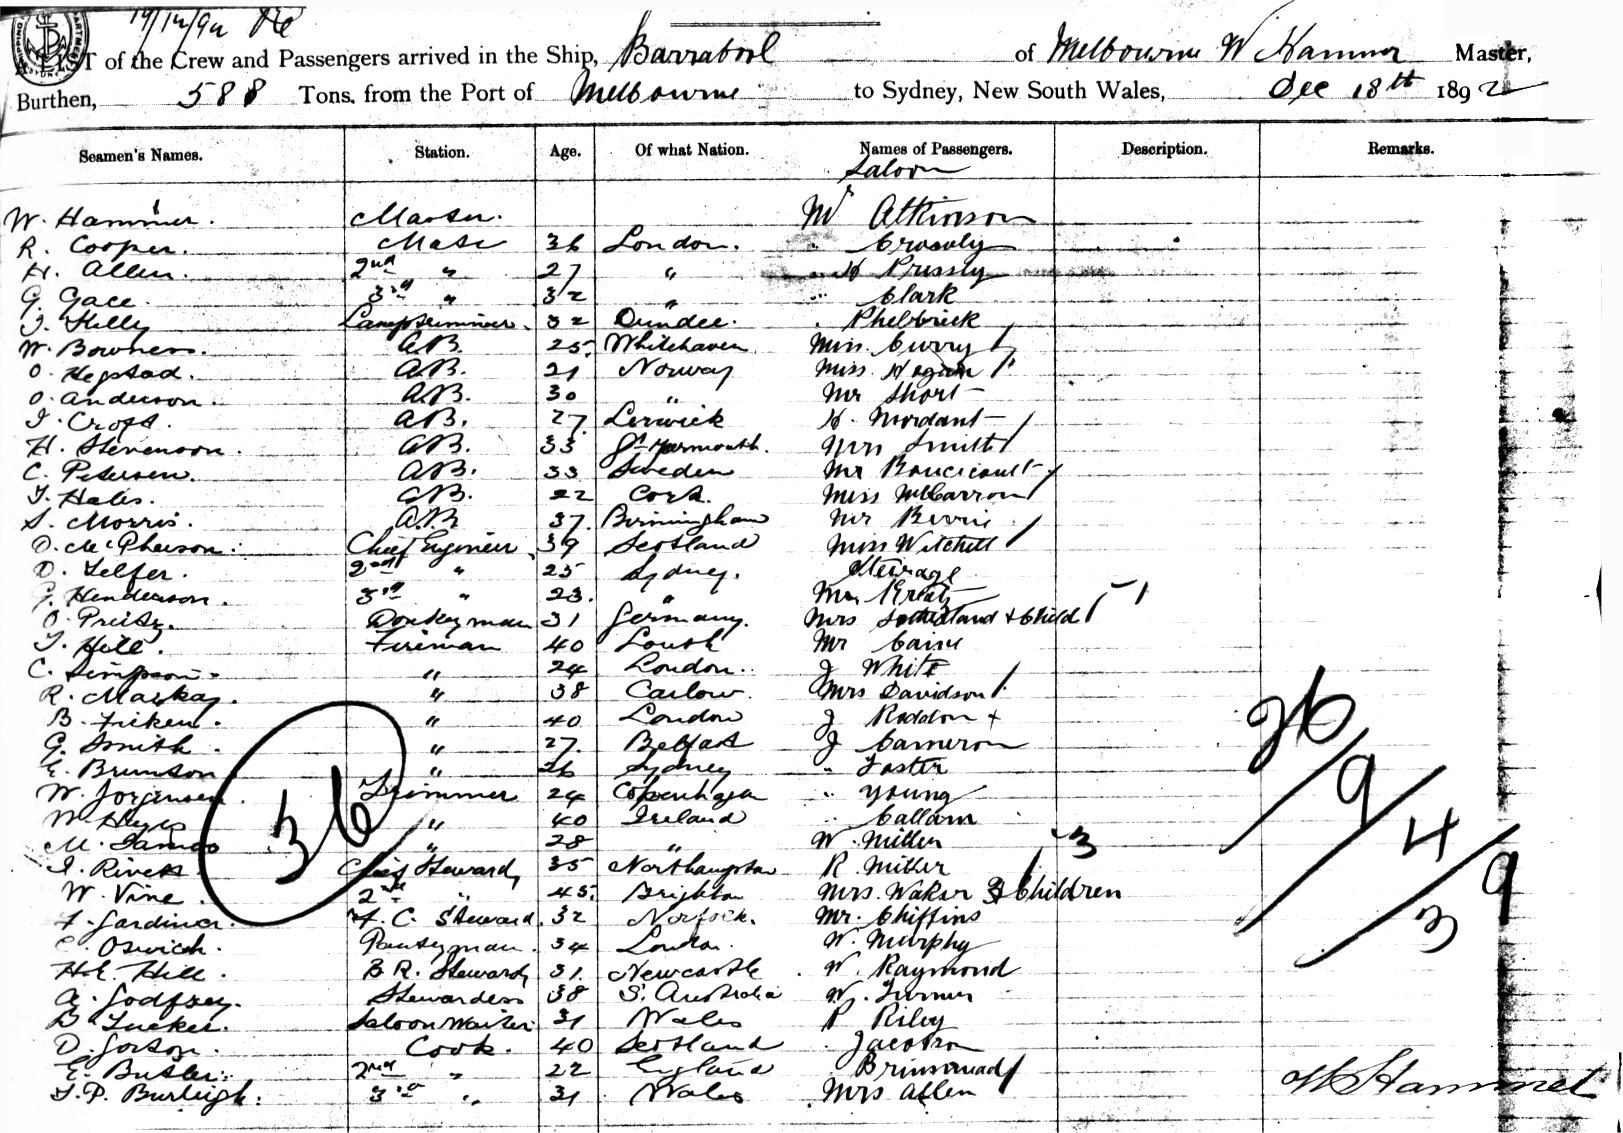 19/12/92
LIST of the Crew and Passengers arrived in the Ship, Barrabool of Melbourne W Hammer Master,
Burthen, 588 Tons. from the Port of Melbourne to Sydney, New South Wales, Dec 18th 1892
Seamen's Names. Station. Age. Of what Nation. Names of Passengers. Description. Remarks.
Saloon
W. Hammer. Master. Mr Atkinson
R. Cooper. Mate 36 London. " Crossly
H. Allen. 2nd " 27 " " H Pressly
G. Gace. 3rd " 32 " " Clark
J. Kelly Lamptrimmer. 32 Dundee. Phelbrick
W. Bowness. A.B. 25. Whitehaven Miss. Curry
O. Hegstad. A.B. 21 Norway Miss. Hogan
O. Anderson. A.B. 30 " Mr Short
J. Croft. A.B. 27. Lerwick H. Mordant
H. Stevenson. A.B. 33 Gt Yarmouth. Mrs Smith
C. Petersen. A.B. 33 Sweden Mr Boucicault
T. Hales. A.B. 22 Cork. Miss McCarron
S. Morris. A.B. 37. Birmingham Mr Berrie
D. McPherson. Chief Engineer 39 Scotland Miss Witchell
D. Telfer. 2nd " 25 Sydney. Steerage
G. Henderson. 3rd " 23. "
O. Preitz. Donkeyman 31 Germany. Mrs Sotherland & Child
T. Hill. Fireman 40 Louth Mr Caine
C. Simpson. " 24 London. J White
R. Mackay. " 38 Carlow. Mrs Davidson
B. Ficken. " 40 London J Roddon
G. Smith. " 27. Belfast J Cameron
E. Brunson " 26 Sydney " Foster
W. Jorjensen. Trimmer 24 Copenhagen " Young
W. Hayes " 40 Ireland " Callam
M. James " 28 " W. Miller 3
J. Rivers Chief Steward 35 Northampton R Miller
W. Vine. 2nd " 45. Brighton Mrs. Waker 3 Children
F. Gardiner. F. C. Steward. 32 Norfolk. Mr. Chiffins
C. Oswick. Pantryman. 34 London. W. Murphy
H.E. Hill. B R. Steward 31. Newcastle W. Raymond
A. Godfrey. Stewardess 38 S. Australia W. Turner
B Tucker. Saloon Waiter 31 Wales P Riley
D. Gordon. Cook. 40 Scotland Jacobson
E. Butler. 2nd " 22 England Brinsmead
T. P. Burleigh. 3rd " 31 Wales Mrs Allen
36
26/9/4/9
3
W Hammer